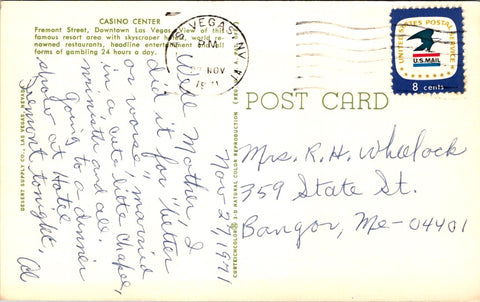 CASINO CENTER
Fremont Street, Downtown Las Vegas. View of this
famous resort area with skyscraper hotels, world re-
nowned restaurants, headline entertainment and all
forms of gambling 24 hours a day.
VEGAS, NV
PM
NOV
UNITED STATES POSTAL SERVICE
U.S. MAIL
8 cents
POST CARD
DESERT SUPPLY CO., LAS VEGAS, NEVADA
NATURAL COLOR REPRODUCTION
Nov 27, 1971
Well Mother, I
did it for "better
or worse", married
in a cute little chapel,
minister and all.
Going to a dinner
show at Hotel
Fremont tonight,
Mrs. R. H. Wheelock
359 State St.
Bangor, Me-04401